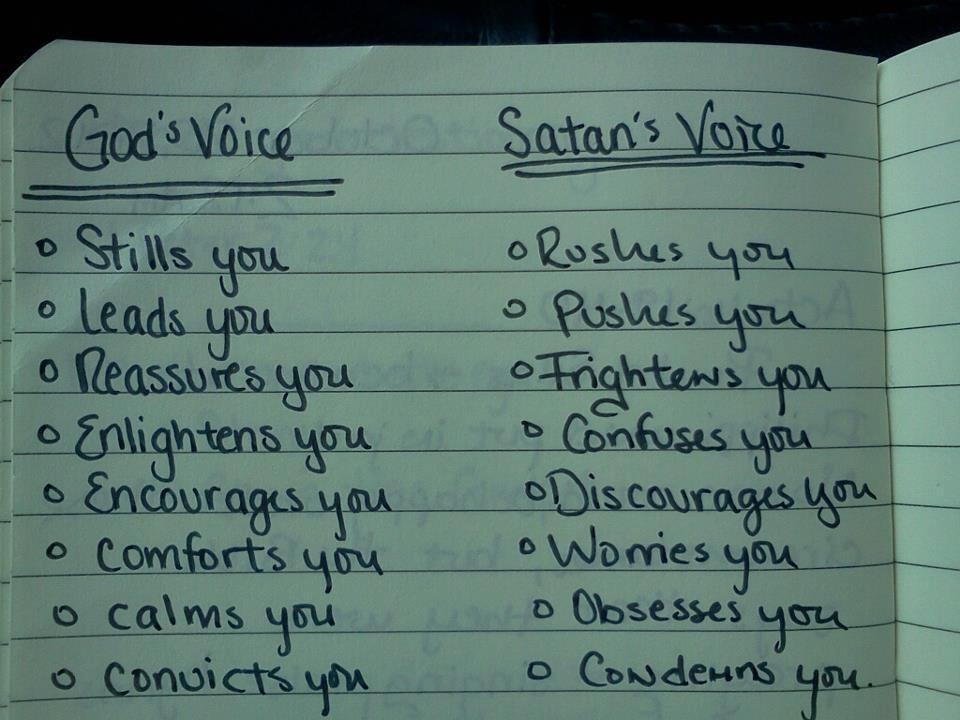 God's Voice Satan's Voice
Stills you Rushes you
Leads you Pushes you
Reassures you Frightens you
Enlightens you Confuses you
Encourages you Discourages you
Comforts you Worries you
calms you Obsesses you
convicts you Condemns you.